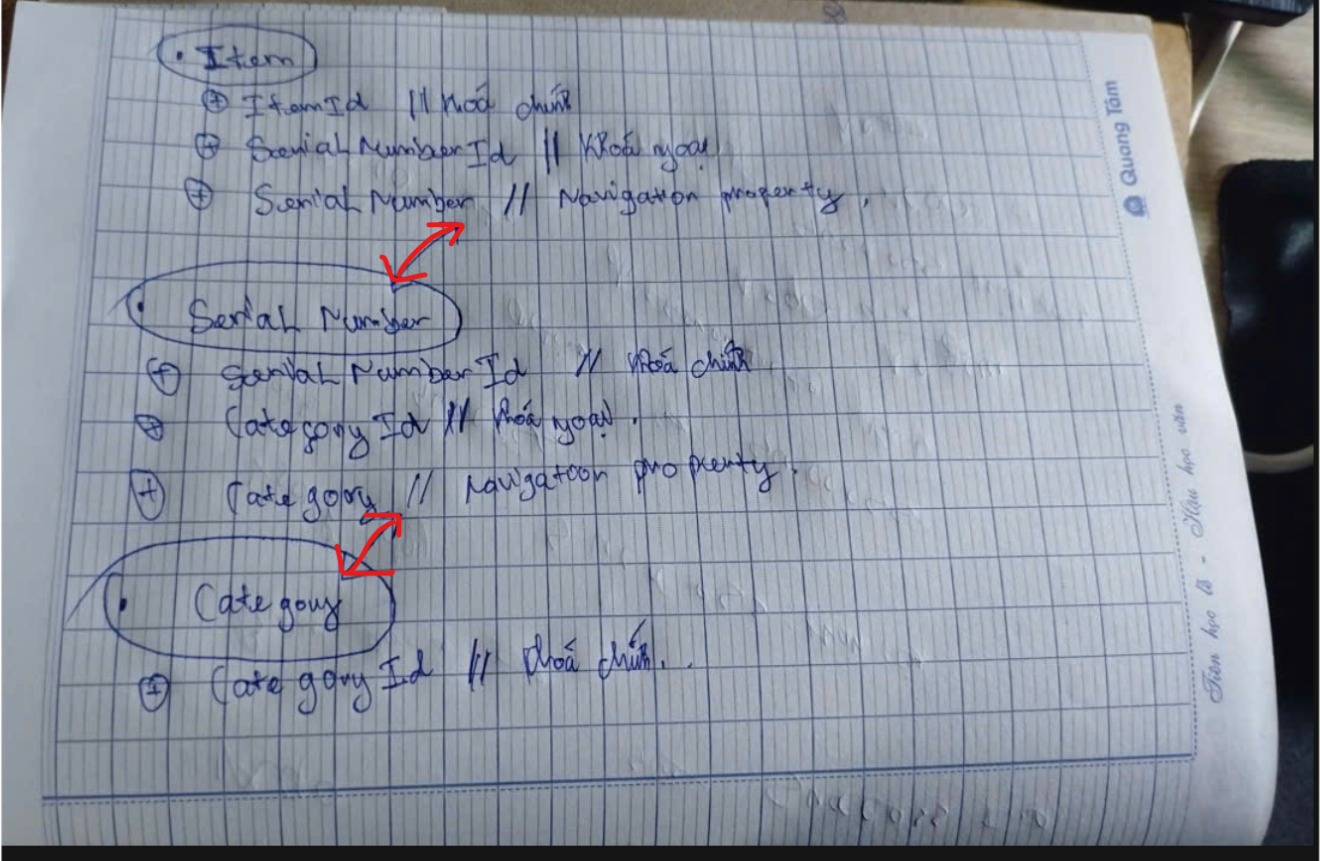 • Item
+ ItemId // Khoá chính
+ Serial Number Id // Khoá ngoại
+ Serial Number // Navigation property.
• Serial Number
+ Serial Number Id // Khoá chính
+ Category Id // Khoá ngoại.
+ Category // Navigation property.
• Category
+ Category Id // Khoá chính.
Quang Tám
Tiên học lễ - Hậu học văn